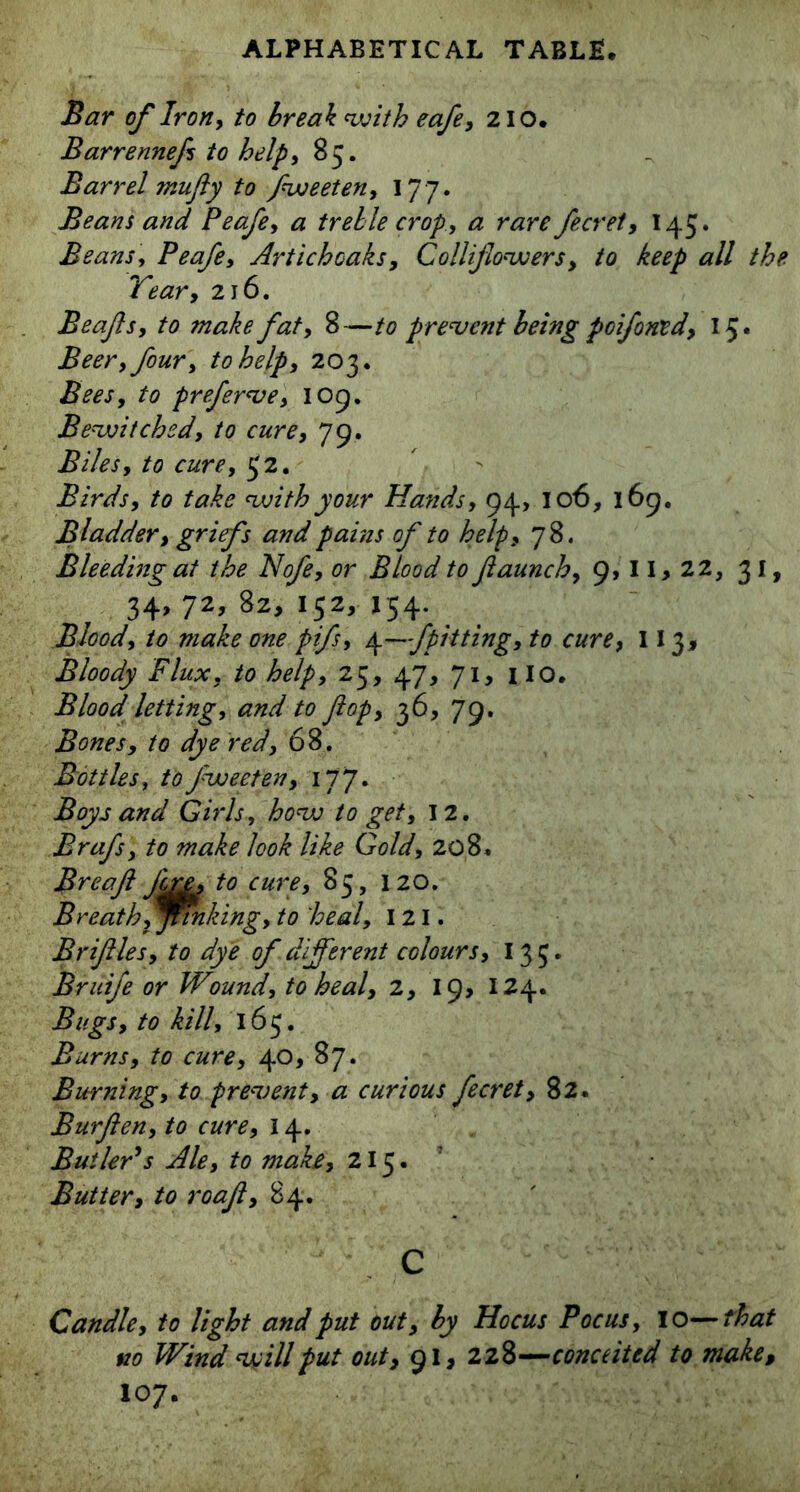 ALPHABETICAL TABLE.
Bar of Iron, to break with eaſe, 210.
Barrenneſs to help, 85.
Barrel muſty to ſweeten, 177.
Beans and Peaſe, a treble crop, a rare ſecret, 145.
Beans, Peaſe, Artichoaks, Colliflowers, to keep all the
Year, 216.
Beaſts, to make fat, 8—to prevent being poiſoned, 15.
Beer, ſour, to help, 203.
Bees, to preſerve, 109.
Bewitched, to cure, 79.
Biles, to cure, 52.
Birds, to take with your Hands, 94, 106, 169.
Bladder, griefs and pains of to help, 78.
Bleeding at the Noſe, or Blood to ſtaunch, 9, 11, 22, 31,
34, 72, 82, 152, 154.
Blood, to make one piſs, 4—ſpitting, to cure, 113,
Bloody Flux, to help, 25, 47, 71, 110.
Blood letting, and to ſtop, 36, 79.
Bones, to dye red, 68.
Bottles, to ſweeten, 177.
Boys and Girls, how to get, 12.
Braſs, to make look like Gold, 208.
Breaſt ſore, to cure, 85, 120.
Breath, ſtinking, to heal, 121.
Briſtles, to dye of different colours, 135.
Bruiſe or Wound, to heal, 2, 19, 124.
Bugs, to kill, 165.
Burns, to cure, 40, 87.
Burning, to prevent, a curious ſecret, 82.
Burſten, to cure, 14.
Butler's Ale, to make, 215.
Butter, to roaſt, 84.
C
Candle, to light and put out, by Hocus Pocus, 10—that
no Wind will put out, 91, 228—conceited to make,
107.